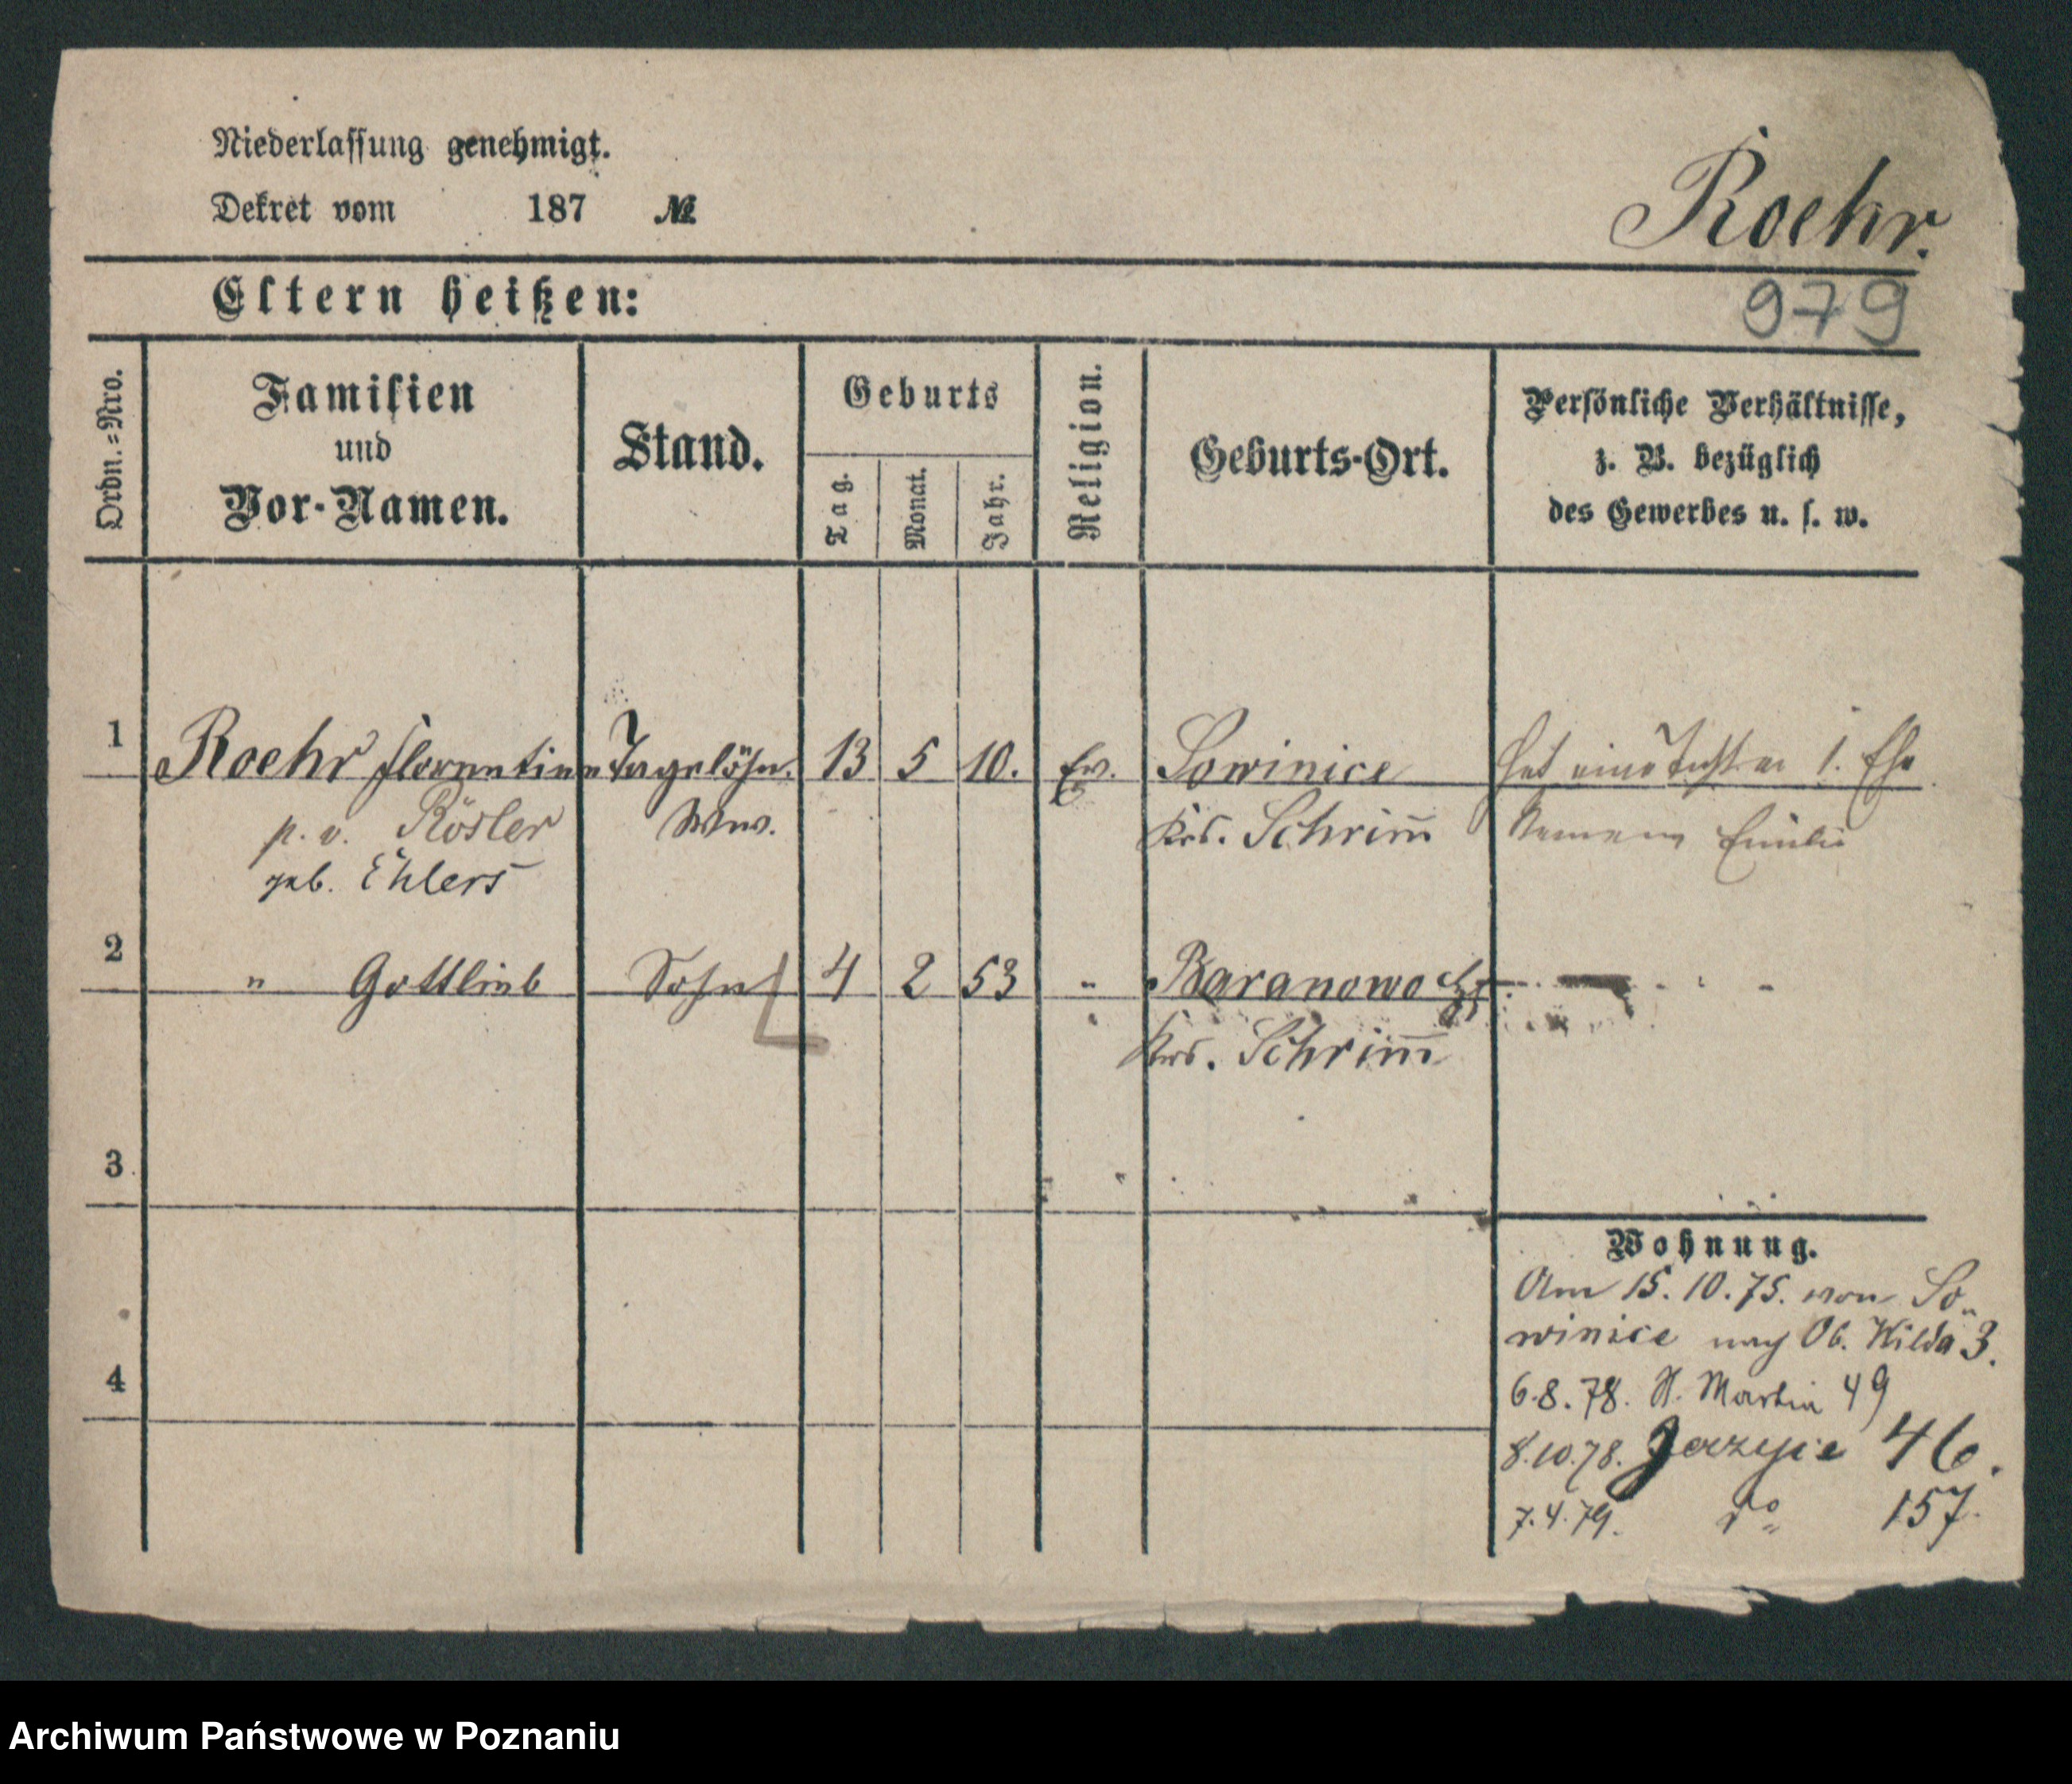 Niederlassung genehmigt.
Dekret vom 187 №
Roehr.
Eltern heißen:
979
Ordn.=Nro.
Familien
und
Vor-Namen.
Stand.
Geburts
Tag.
Monat.
Jahr.
Religion.
Geburts-Ort.
Persönliche Verhältnisse,
z. B. bezüglich
des Gewerbes u. s. w.
1 Roehr Florentine Tagelöhn. 13 5 10. Ev. Sowinice hat eine Tochter 1. Ehe
p. v. Rösler Wwe. Krs. Schrim̅ Namens Emilie
geb. Ehlers
2 " Gottlieb Sohn 4 2 53 " Baranowo
Krs. Schrim̅
3
4
Wohnung.
Am 15.10.75. von So-
winice nach Ob. Wilda 3.
6.8.78. St. Martin 49
8.10.78. Jerzyce 46.
7.4.79. do 157.
Archiwum Państwowe w Poznaniu